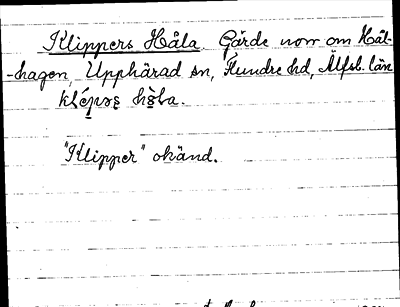 Klippers Håla. Gärde norr om Hål-
-hagen, Upphärad sn, Flundre hd, Älfsb. län
"Klipper" okänd.